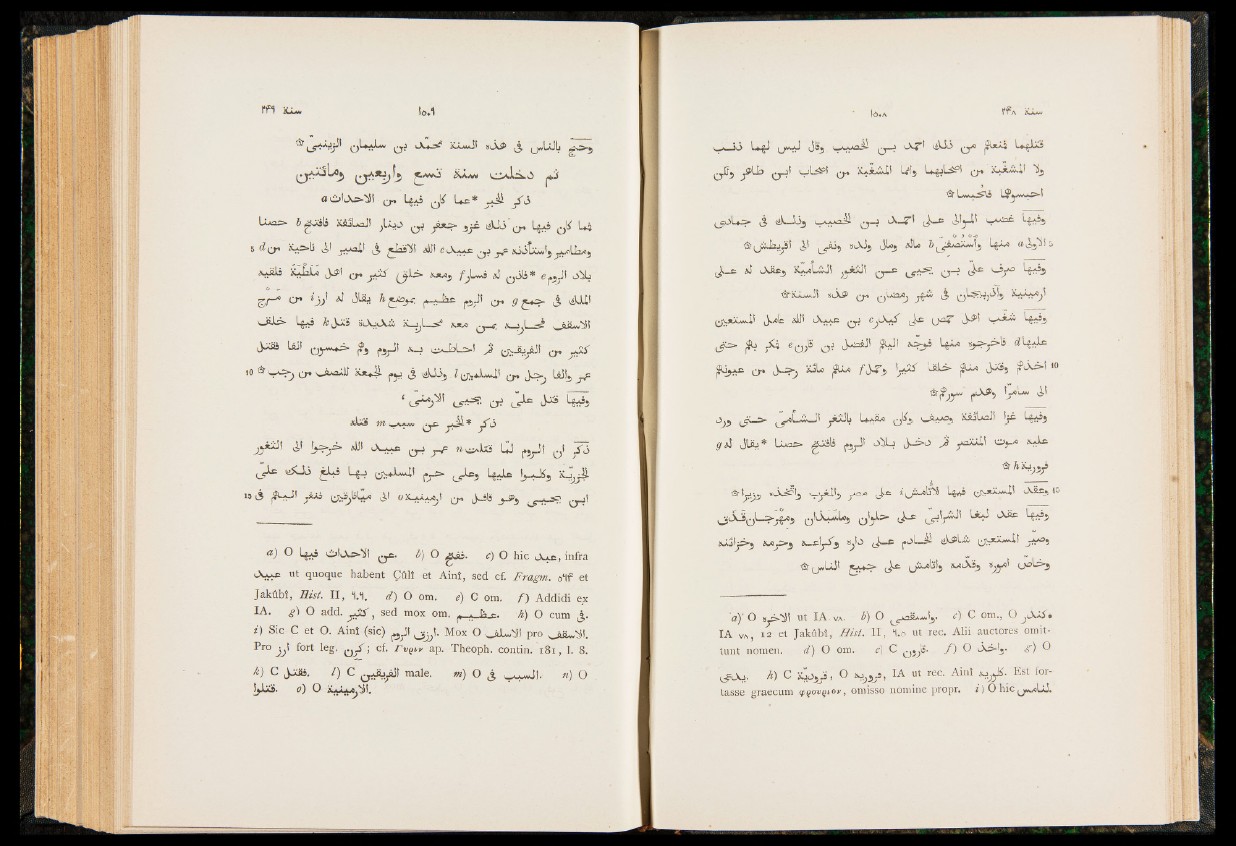 سنة ٢٤٨ ١٥٠٨
قتلهما فمنعهم من ذلك احمد بن الخصيب وقال ليس لهما ذنب
ولا المشغّبة من اصحابهما وانما المشغّبة من اصحاب ابن طاهر ولكن
احبسوهما فحُبسا ۞
وفيها غضب الموالى على احمد بن الخصيب وذلك فى جمادى
5 الاولى a منها وٱسْتُصْفِىَ b ماله ومال ولده ونفى الى اقريطش ۞
وفيها صرف علىّ بن يحيى عن الثغور الشأميّة وعقد له على
ارمينية وآذربيجان فى شهر رمضان من هذه السنة ۞
وفيها شغب اهل حمص على كيدر c بن عبيد الله عامل المستعين
عليها d فاخرجوه منها فوجّه اليهم الفضل بن قارن e فمكر بهم حتى
10 اخذهم فقتل منهم خلقا كثيرا وحمل f منهم مائة رجل من عيونهم
الى سامرّا وهدم سورهم ۞
وفيها غزا الصائفة وصيف وكان مقيما بالثغر الشأمىّ حتى ورد
عليه موت المنتصر ثم دخل بلاد الروم فافتتح حصنا *يقال له g
فرورية h ۞
15 وفيها عقد المستعين لأُتامش i على مصر والمغرب واتّخذه وزيرا ۞
وفيها عقد لبغا الشرابىّ على حلوان وماسبذان ومهرجانقذق
وصيّر المستعين شاهك الخادم على داره وكراعه وحرمه وخزائنه
وخاصّ اموره وقدّمه وأتامش على جميع الناس ۞
a) O الاخرة ut IA ٧٨. b) O واستقصى. c) C om., O كندر.
IA ٧٨, 12 et Jakûbî, Hist. II, ٦٠٥ ut rec. Alii auctores omit-
tunt nomen. d) O om. e) C قارون. f) O واخذ. g) O
يدعى. h) C قرودية, O فروريه, IA ut rec. Ainî كربه. Est for-
tasse graecum φρουριον, omisso nomine propr. i) O hic لنامس.
سنة ٢٤٩ ١٥٠٩
وحجّ بالناس فى هذه السنة محمّد بن سليمان الزينبىّ ۞
ثم دخلت سنة تسع واربعين ومائتين
ذكر الخبر *عما كان فيها من الاحداث a
فما كان فيها من ذلك غزو جعفر بن دينار الصائفة فافتتح b حصنا
5 ومطامير واستأذنه عمر بن عبيد c الله الاقطع فى المصير الى ناحية من d
بلاد الروم e *فاذن له فسار f ومعه خلق كثير من اهل ملطية فلقيه
الملك فى جمع g من الروم عظيم بموضع h يقال له ارز i من مرج
الاسقف فحاربه بمن معه محاربة شديدة قتل k فيها خلق
كثير من الفريقين ثم احاطت به الروم وهم خمسون الفا فقتل
10 عمر والفا رجل من المسلمين l وذلك فى يوم الجمعة للنصف من رجب ۞
وفيها قتل علىّ بن يحيى الارمنىّ ،
ذكر *الخبر عن سبب m قتله
ذكر ان الروم لما قتلت n عمر بن عبيد الله خرجوا الى الثغور
الجزريّة وكلبوا عليها وعلى حرم المسلمين بها فبلغ ذلك علىّ
15 ابن يحيى وهو قافل من ارمينية o الى ميّافارقين فنفر اليهم فى
a) O عن الاحداث فيها. b) O ففتح. c) O hic عبد, infra
عبيد ut quoque habent Çûlî et Ainî, sed cf. Fragm. ٥٦٤ et
Jakûbî, Hist. II, ٦٠٦. d) O om. e) C om. f) Addidi ex
IA. g) O add. كثير, sed mox om. عظيم. h) O cum فى.
i) Sic C et O. Ainî (sic) ارزى الروم. Mox O الاسلف pro الاسقف.
Pro ارز fort leg. كرن; cf. Γυριν ap. Theoph. contin. 181, l. 8.
k) C فقتل. l) C الفريقين male. m) O فى السبب. n) O
قتلوا. o) O الارمينية.